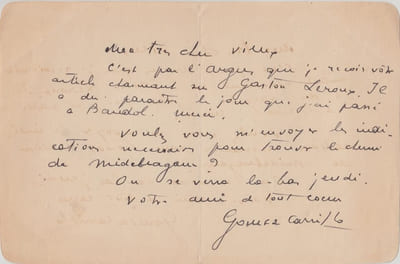 Mon tres cher vieux
C'est par l'argus que je reçois votre
article charmant sur Gaston Leroux. Il
a du paraitre le jour que j'ai passé
a Bandol. merci.
Voulez vous m'envoyer les indi-
cations necessaires pour trouver le chemin
de
On se verra la-bas jeudi.
Votre ami de tout coeur
Gomez Carrillo